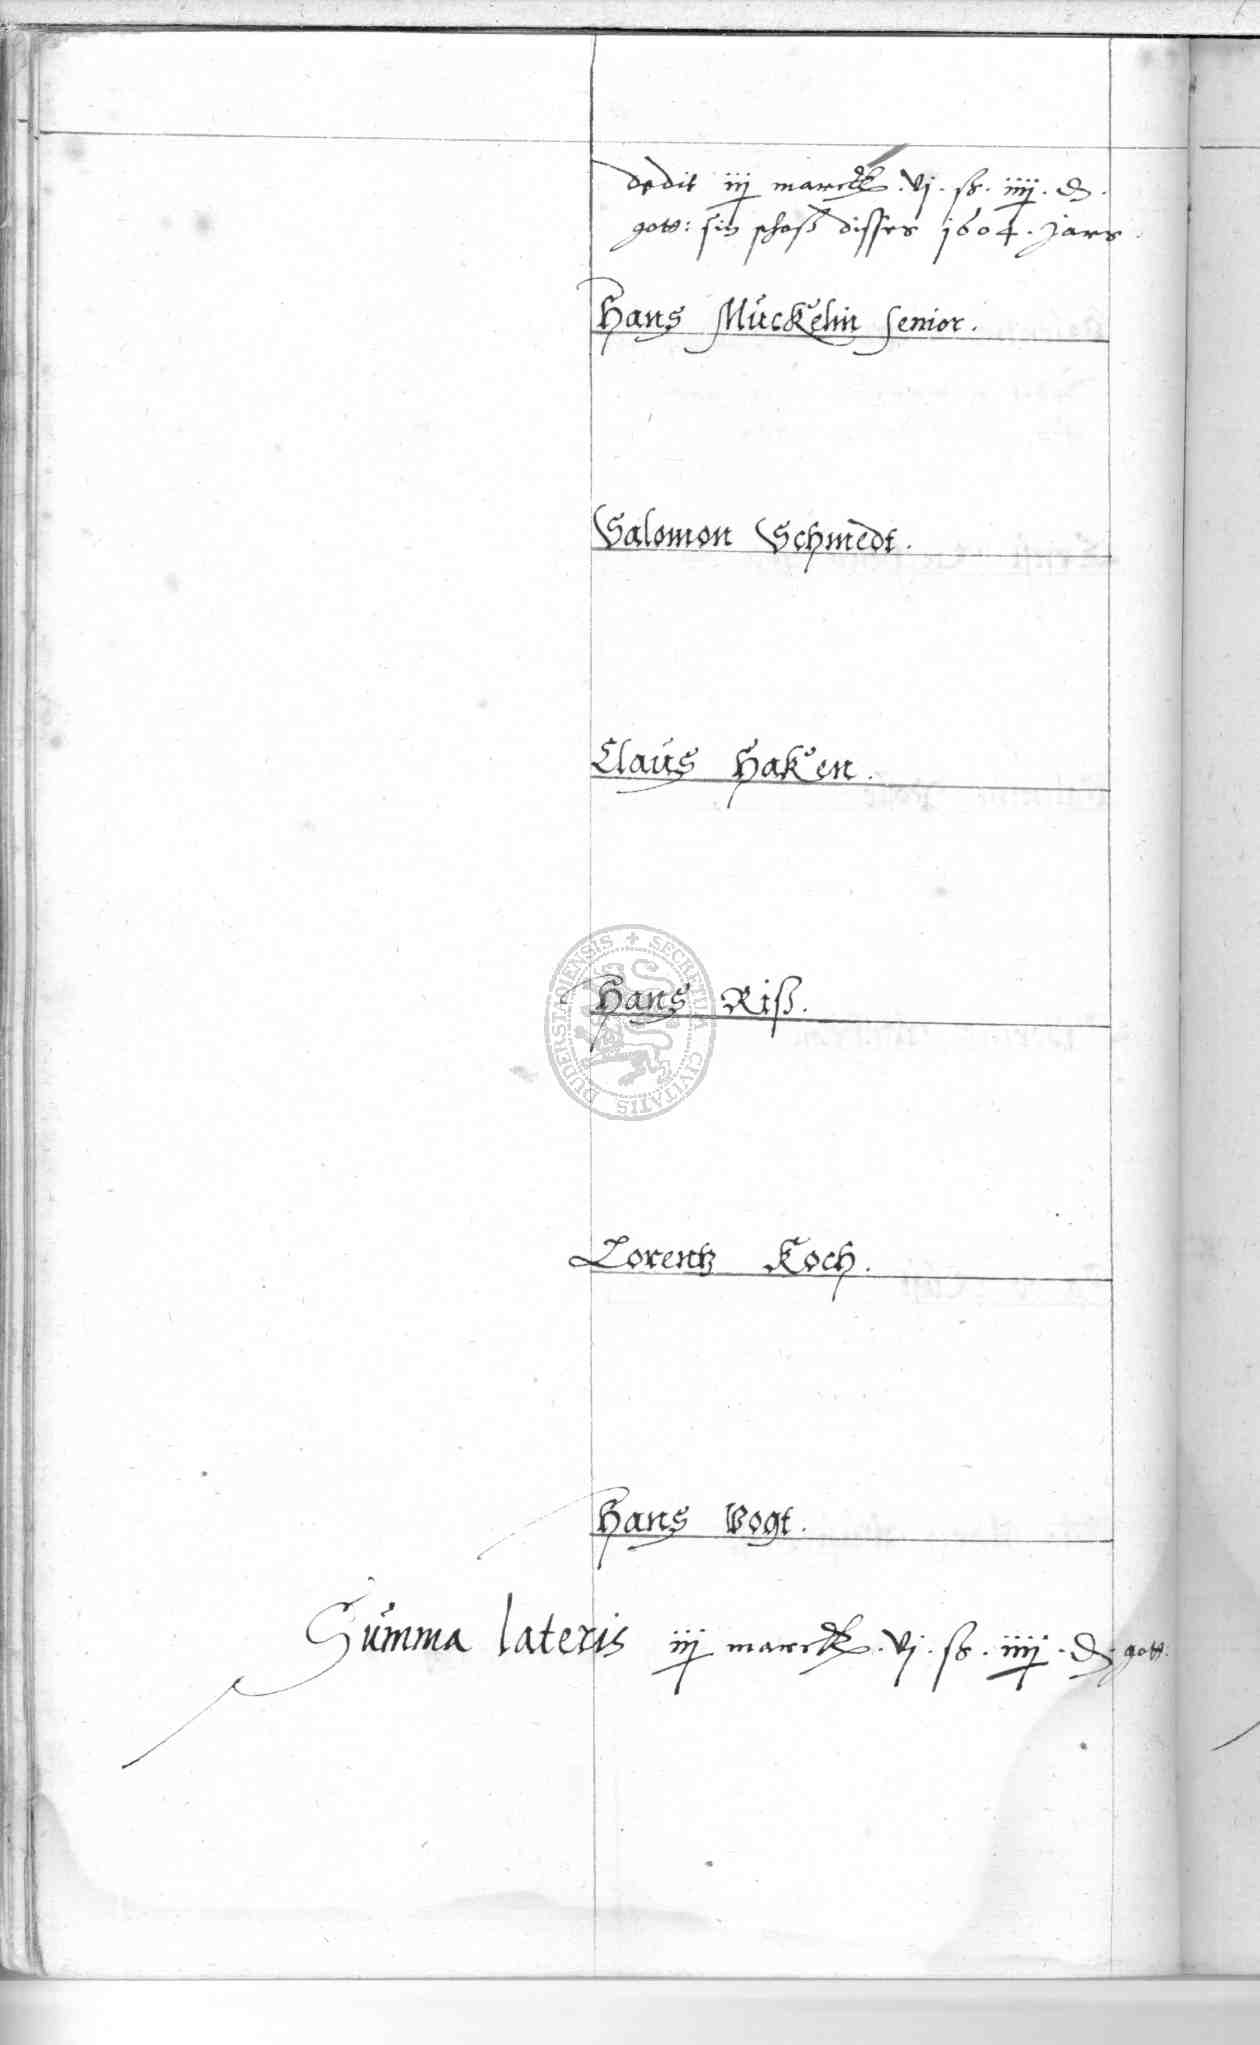 dedit iij marck . vj . ß . iiij . d .
gott: sin schoß disses 1604 . Jars .
Hans Mückelin senior .
Salomon Schmedt .
Claus Haken .
Hans Riß .
Lorentz Koch .
Hans Vogt .
Summa lateris iij marck . vj . ß . iiij . d . gott:
SECRETUM CIVITATIS DUDERSTADIENSIS